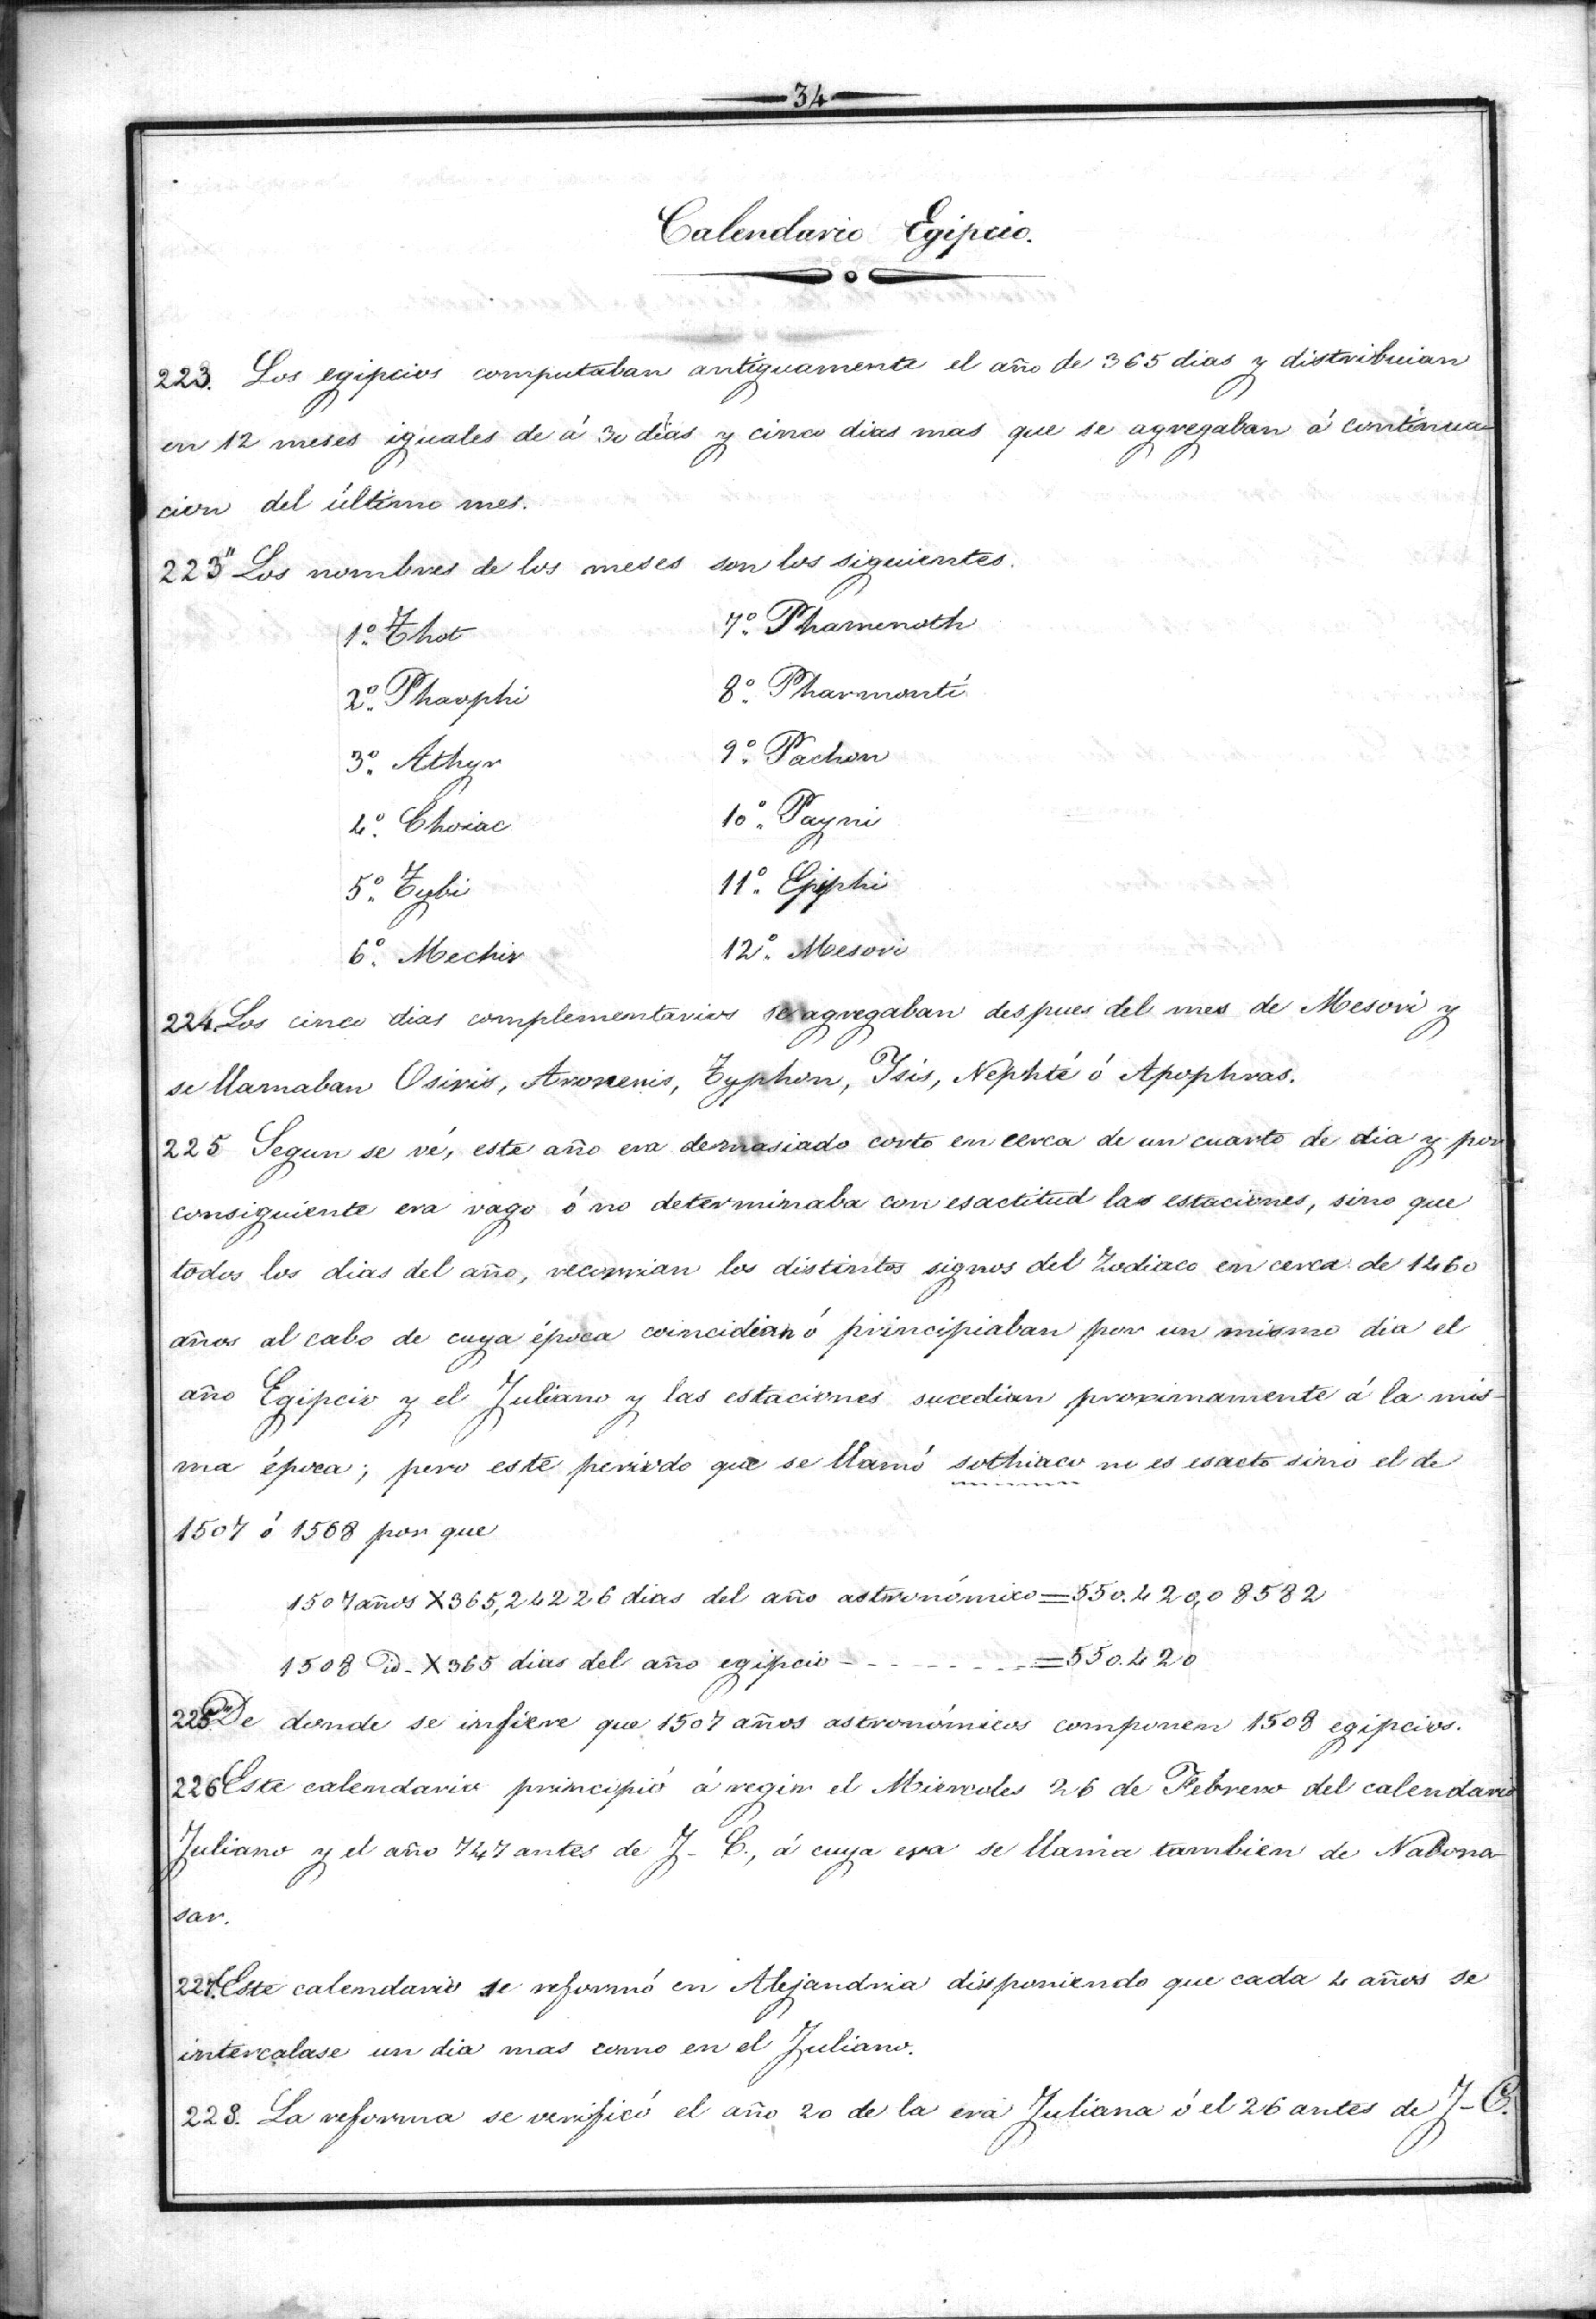 34
Calendario Egipcio.
223. Los egipcios computaban antiguamente el año de 365 dias y distribuian
en 12 meses iguales de á 30 dias y cinco dias mas que se agregaban á continua-
cion del último mes.
223" Los nombres de los meses son los siguientes.
1º. Thot
7º. Phamenoth
2º. Phaophi
8º. Pharmonti
3º. Athyr
9º. Pachon
4º. Choiac
10º. Payni
5º. Tybi
11º. Epiphi
6º. Mechir
12º. Mesori
224. Los cinco dias complementarios se agregaban despues del mes de Mesori y
se llamaban Osiris, Aroneris, Typhon, Isis, Nephté ó Apophras.
225 Segun se vé, este año era demasiado corto en cerca de un cuarto de dia y por
consiguiente era vago ó no determinaba con esactitud las estaciones, sino que
todos los dias del año, recorrian los distintos signos del Zodiaco en cerca de 1460
años al cabo de cuya época coincidian ó principiaban por un mismo dia el
año Egipcio y el Juliano y las estaciones sucedian proximamente á la mis-
ma época; pero este periodo que se llamó sothiaco no es esacto sinó el de
1507 ó 1568 por que
1507 años X 365,24226 dias del año astronómico = 550.420,08582
1508 id- X 365 dias del año egipcio - - - - - - - - = 550.420
225" De donde se infiere que 1507 años astronómicos componen 1508 egipcios.
226 Este calendario principió á regir el Miercoles 26 de Febrero del calendario
Juliano y el año 747 antes de J-C., á cuya era se llama tambien de Nabona-
sar.
227. Este calendario se reformó en Alejandria disponiendo que cada 4 años se
intercalase un dia mas como en el Juliano.
228. La reforma se verificó el año 20 de la era Juliana ó el 26 antes de J-C.